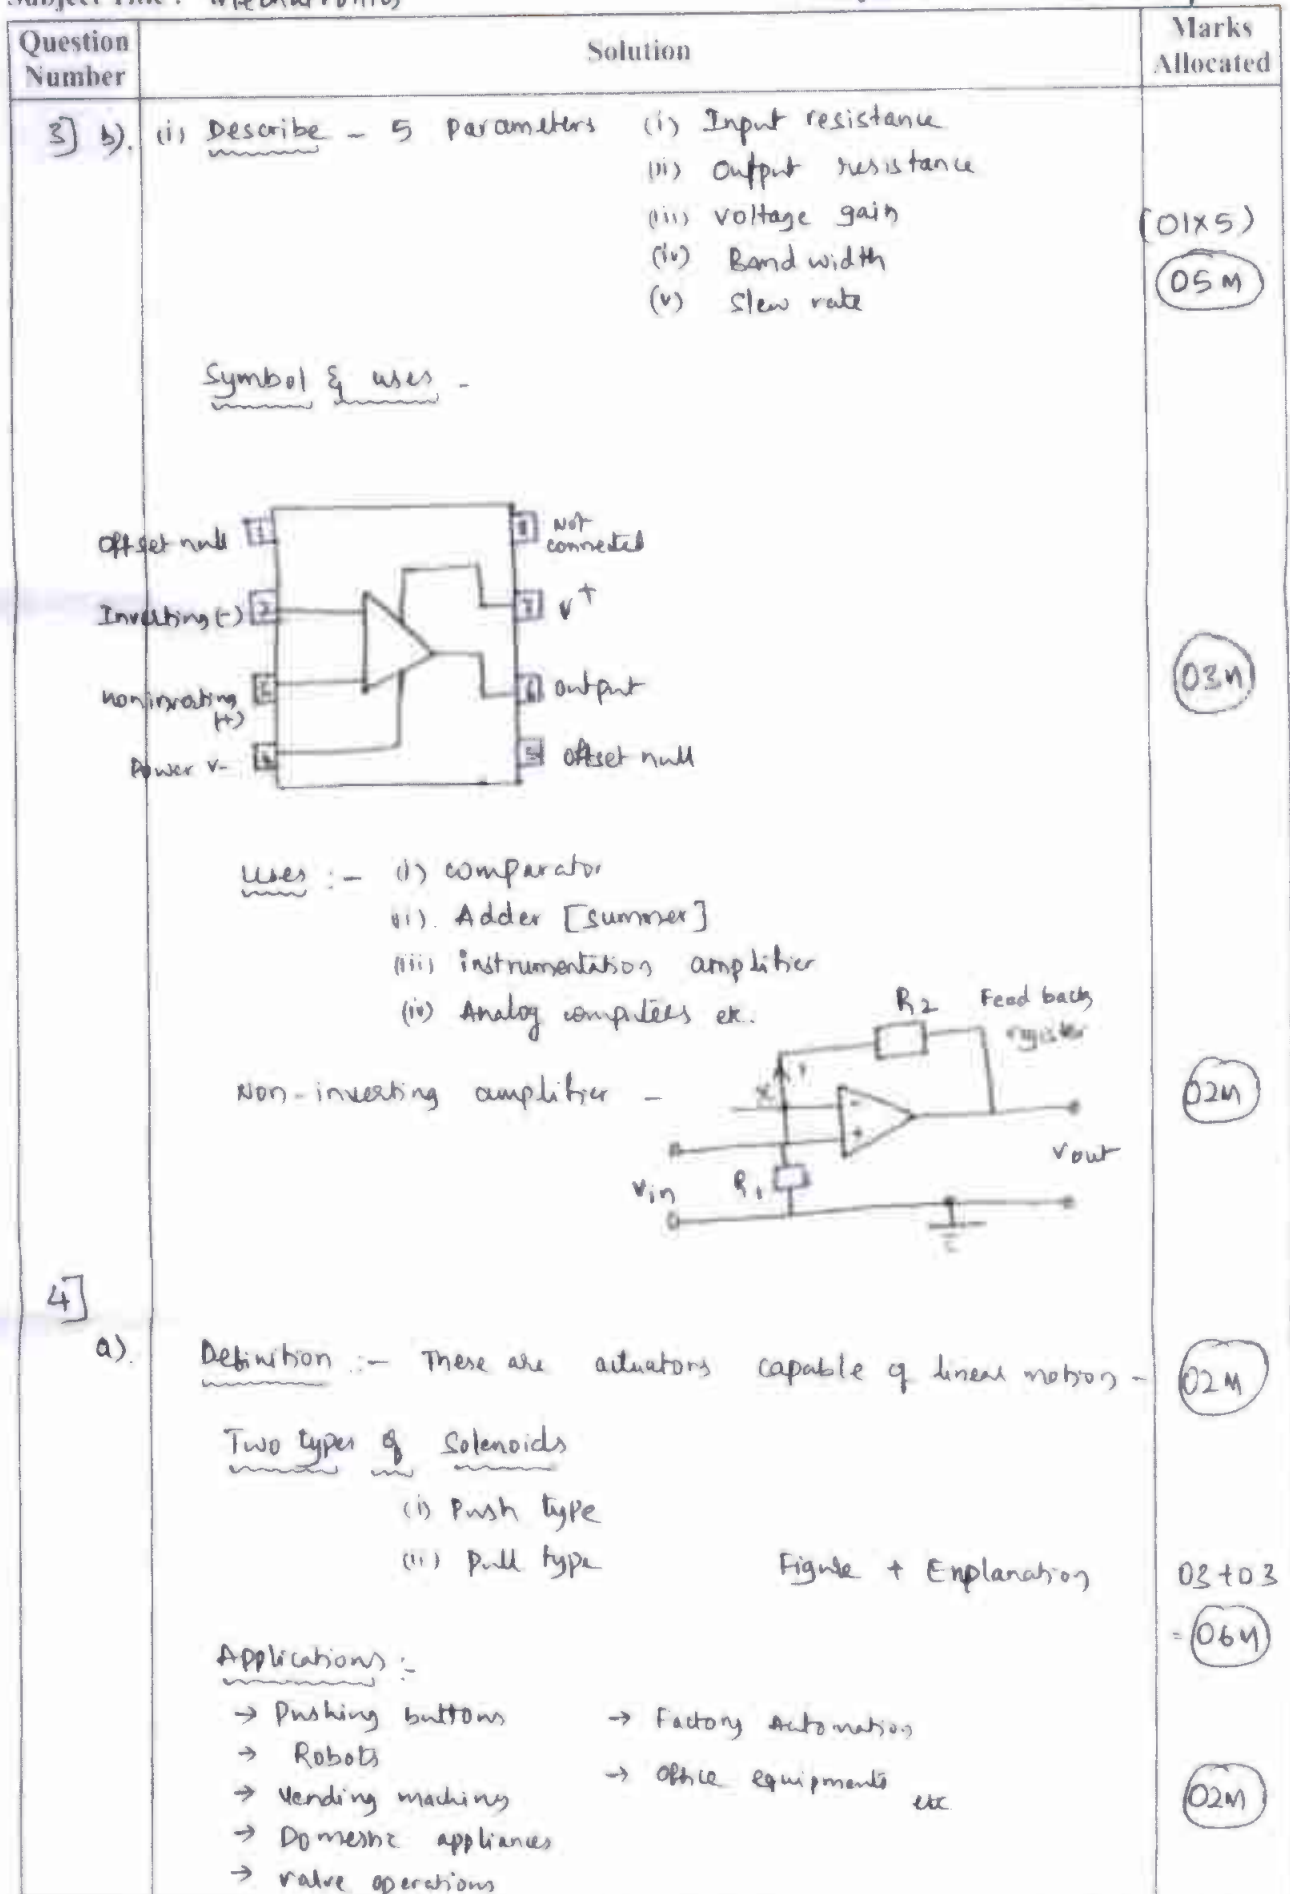 Subject Title : Mechatronics
Question Number
Solution
Marks Allocated
3] b). (i) Describe - 5 Parameters (i) Input resistance
(ii) Output resistance
(iii) Voltage gain
(iv) Band width
(v) Slew rate
(01x5)
05 M
Symbol & uses -
Offset null 1
8 Not connected
Inverting (-) 2
7 V+
Non inverting (+) 3
6 Output
Power V- 4
5 Offset null
03M
Uses :- (i) comparator
(ii). Adder [summer]
(iii) instrumentation amplifier
(iv) Analog computers etc.
Non-inverting amplifier -
R2 Feed back register
X I
- +
Vin R1
Vout
02M
4]
a). Definition :- These are actuators capable of linear motion - 02M
Two types of Solenoids
(i) Push type
(ii) Pull type Figure + Explanation 03+03
= 06M
Applications :-
→ Pushing buttons → Factory Automation
→ Robots
→ Office equipments etc
→ Vending machines
02M
→ Domestic appliances
→ Valve operations